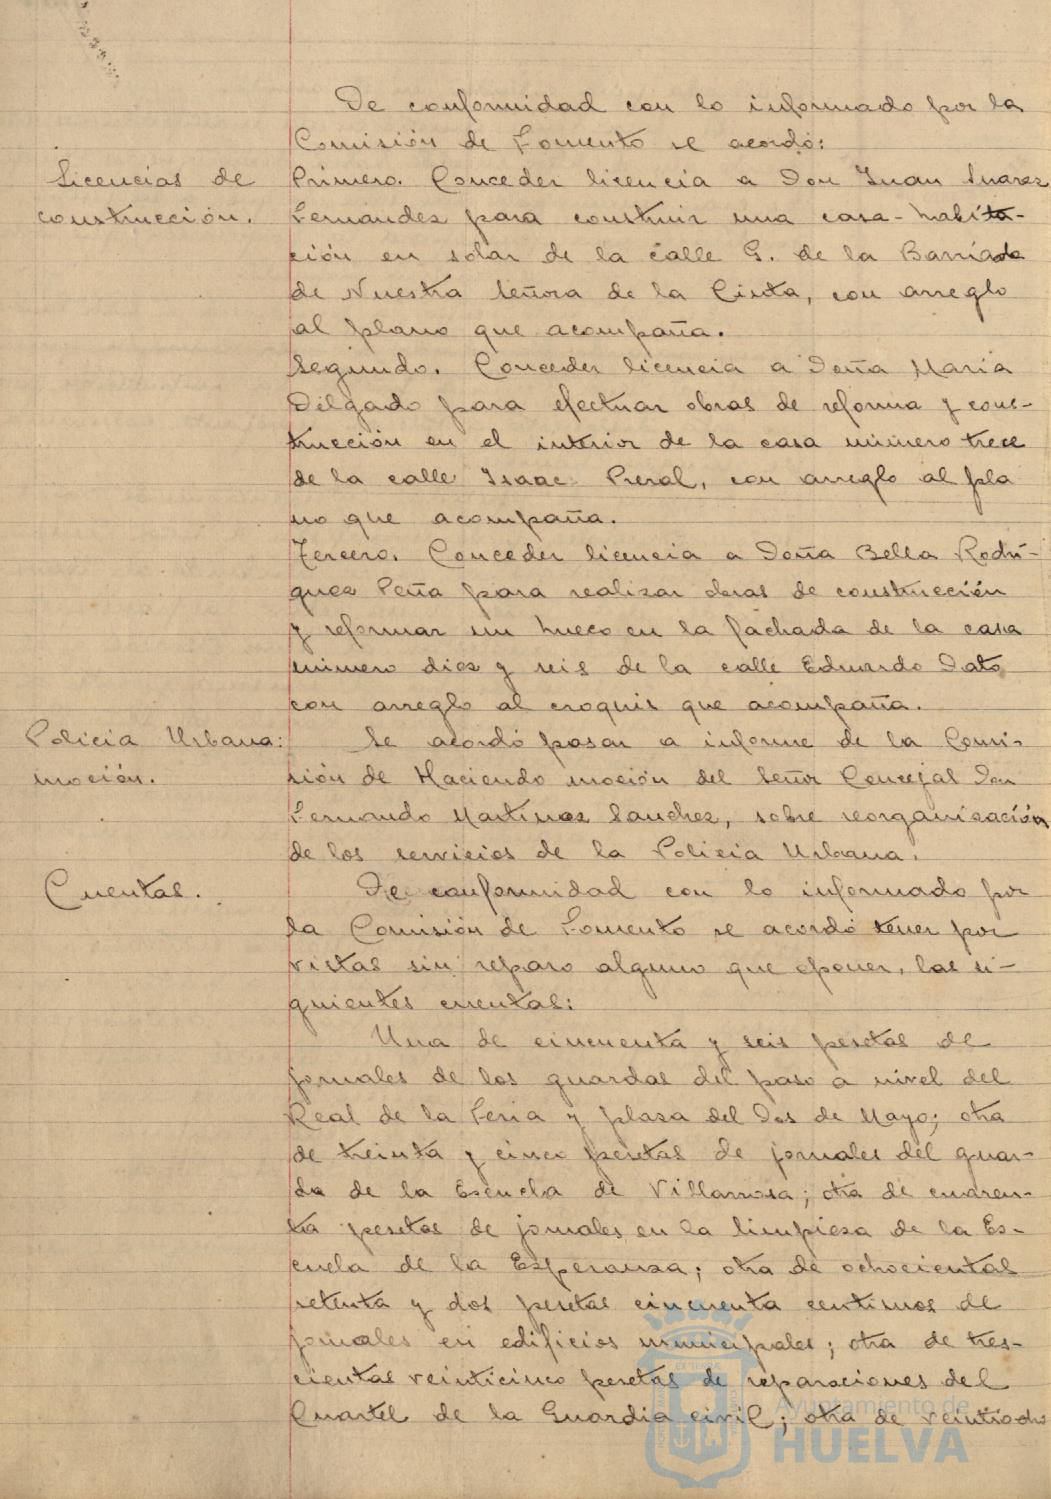 De conformidad con lo informado por la
Comisión de Fomento se acordó:
Licencias de
construcción.
Primero. Conceder licencia a Don Juan Suarez
Fernandez para construir una casa-habita-
ción en solar de la calle G. de la Barriada
de Nuestra Señora de la Cinta, con arreglo
al plano que acompaña.
Segundo. Conceder licencia a Doña Maria
Delgado para efectuar obras de reforma y cons-
trucción en el interior de la casa número trece
de la calle Isaac Peral, con arreglo al pla
no que acompaña.
Tercero. Conceder licencia a Doña Bella Rodrí-
guez Peña para realizar obras de construcción
y reformar un hueco en la fachada de la casa
número diez y seis de la calle Eduardo Dato
con arreglo al croquis que acompaña.
Policia Urbana:
moción.
Se acordó pasar a informe de la Comi-
sión de Haciendo moción del Señor Concejal Don
Fernando Martinez Sanchez, sobre reorganización
de los servicios de la Policia Urbana.
Cuentas.
De conformidad con lo informado por
la Comisión de Fomento se acordó tener por
vistas sin reparo alguno que oponer, las si-
guientes cuentas:
Una de cincuenta y seis pesetas de
jornales de los guardas del paso a nivel del
Real de la Feria y plaza del Dos de Mayo; otra
de treinta y cinco pesetas de jornales del guar-
da de la Escuela de Villarrosa; otra de cuaren-
ta pesetas de jornales en la limpieza de la Es-
cuela de la Esperanza; otra de ochocientas
setenta y dos pesetas cincuenta centimos de
jornales en edificios municipales; otra de tres-
cientas veinticinco pesetas de reparaciones del
Cuartel de la Guardia civil; otra de veintiocho
Ayuntamiento de
HUELVA